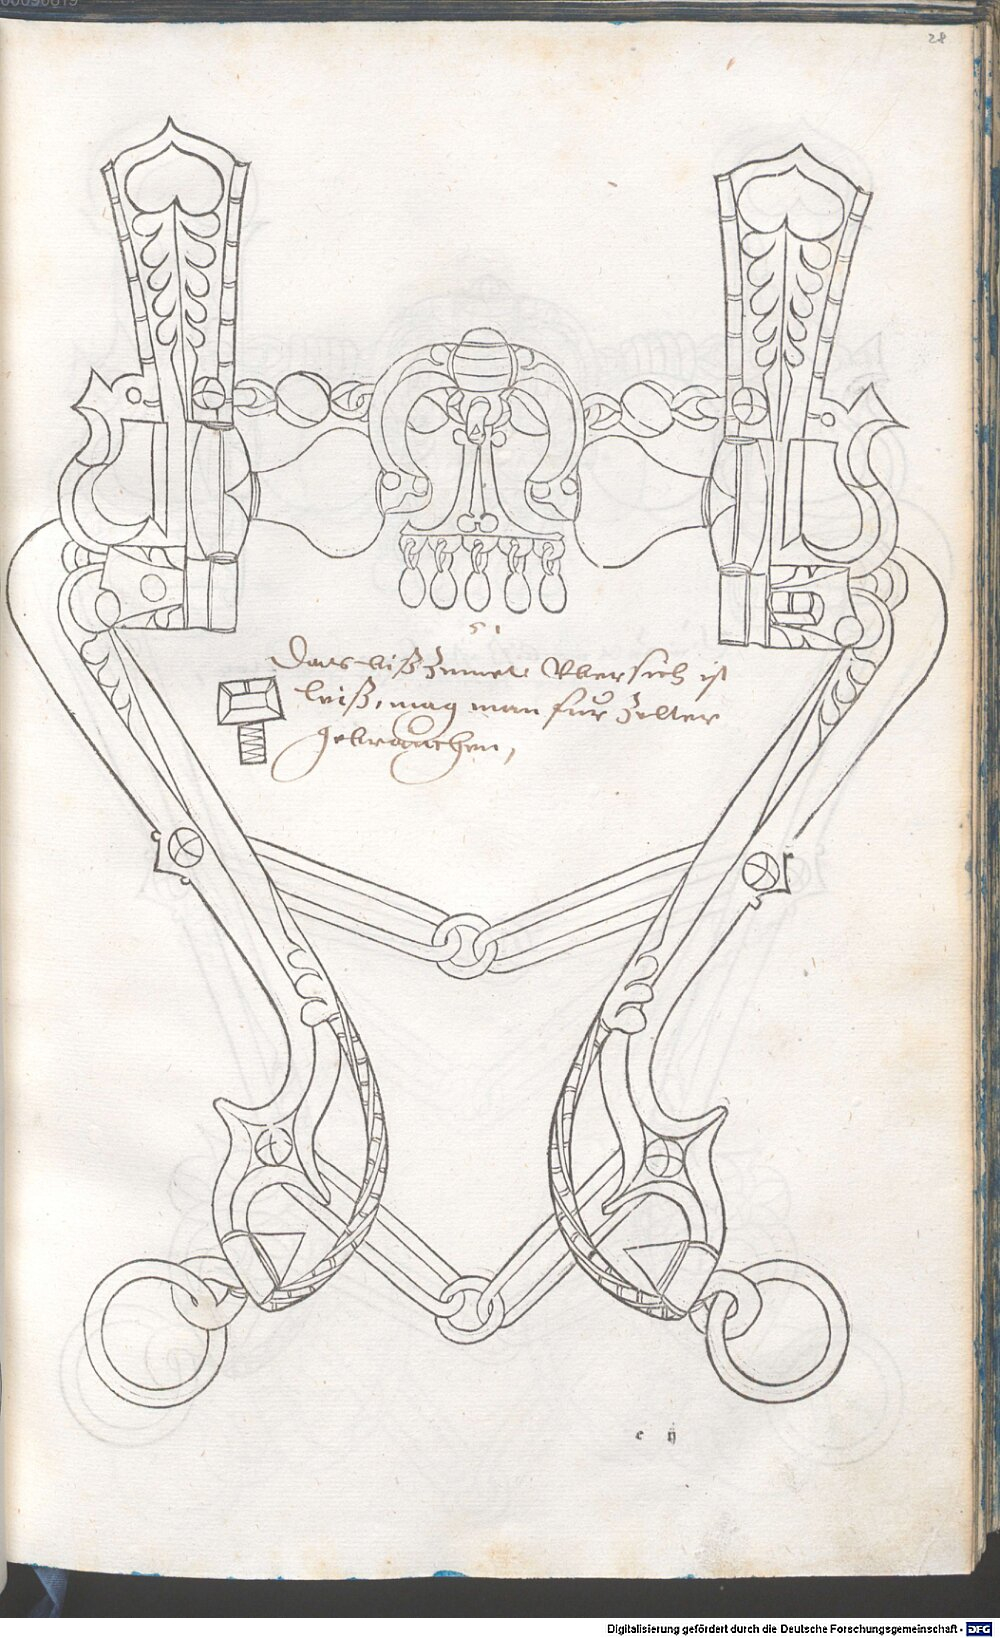 28
51
Das biß Zeumet Vbersich ist
leiß, mag man für Zelter
gebrauchen,
e ij
Digitalisierung gefördert durch die Deutsche Forschungsgemeinschaft - DFG